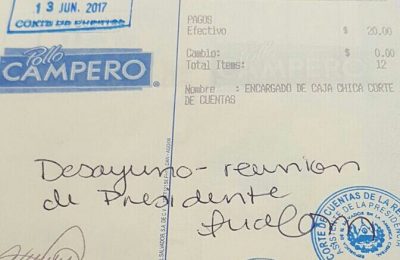 13 JUN. 2017
CORTE DE CUENTAS
Pollo
CAMPERO®
PAGOS
Efectivo $ 20.00
Cambio: $ 0.00
Total Items: 12
Nombre : ENCARGADO DE CAJA CHICA CORTE
DE CUENTAS
Desayuno - reunion
de Presidente
CORTE DE CUENTAS DE LA RE
ASISTENTE DE LA PRESIDENCIA